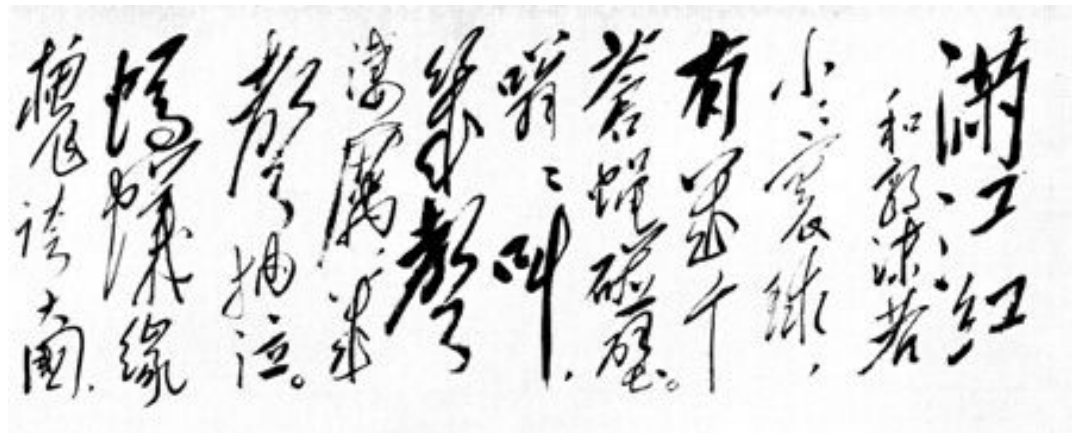 滿江红
和郭沫若
小〻寰球，
有幾个
蒼蠅碰壁。
嗡〻叫，
幾聲
凄厲，幾
聲抽泣。
螞蟻緣
槐誇大國，